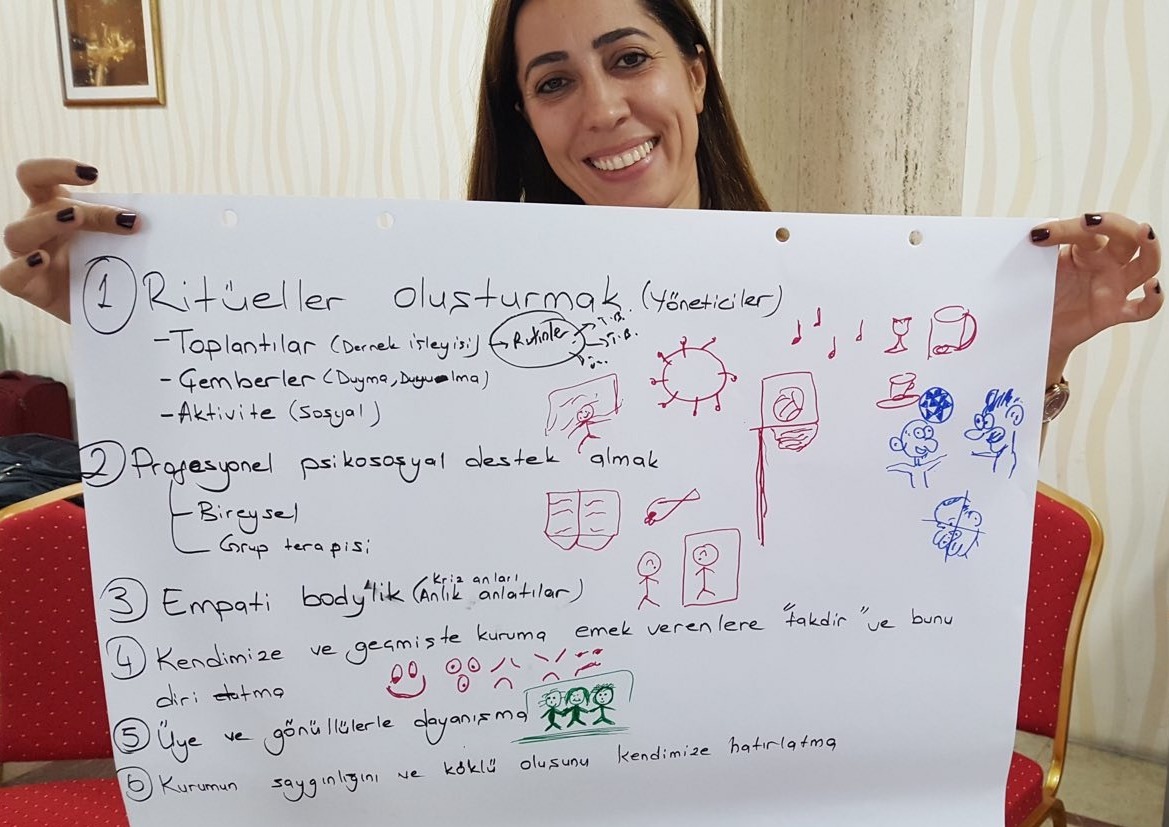 1 Ritüeller oluşturmak (Yöneticiler)
- Toplantılar (Dernek işleyişi) → Rutinler
- Çemberler (Duyma, Duyulma)
- Aktivite (Sosyal)
2 Profesyonel psikososyal destek almak
Bireysel
Grup terapisi
Kriz anları
3 Empati body'lik (Anlık anlatılar)
4 Kendimize ve geçmişte kuruma emek verenlere "takdir" ve bunu
diri tutma
5 Üye ve gönüllülerle dayanışma
6 Kurumun saygınlığını ve köklü oluşunu kendimize hatırlatma